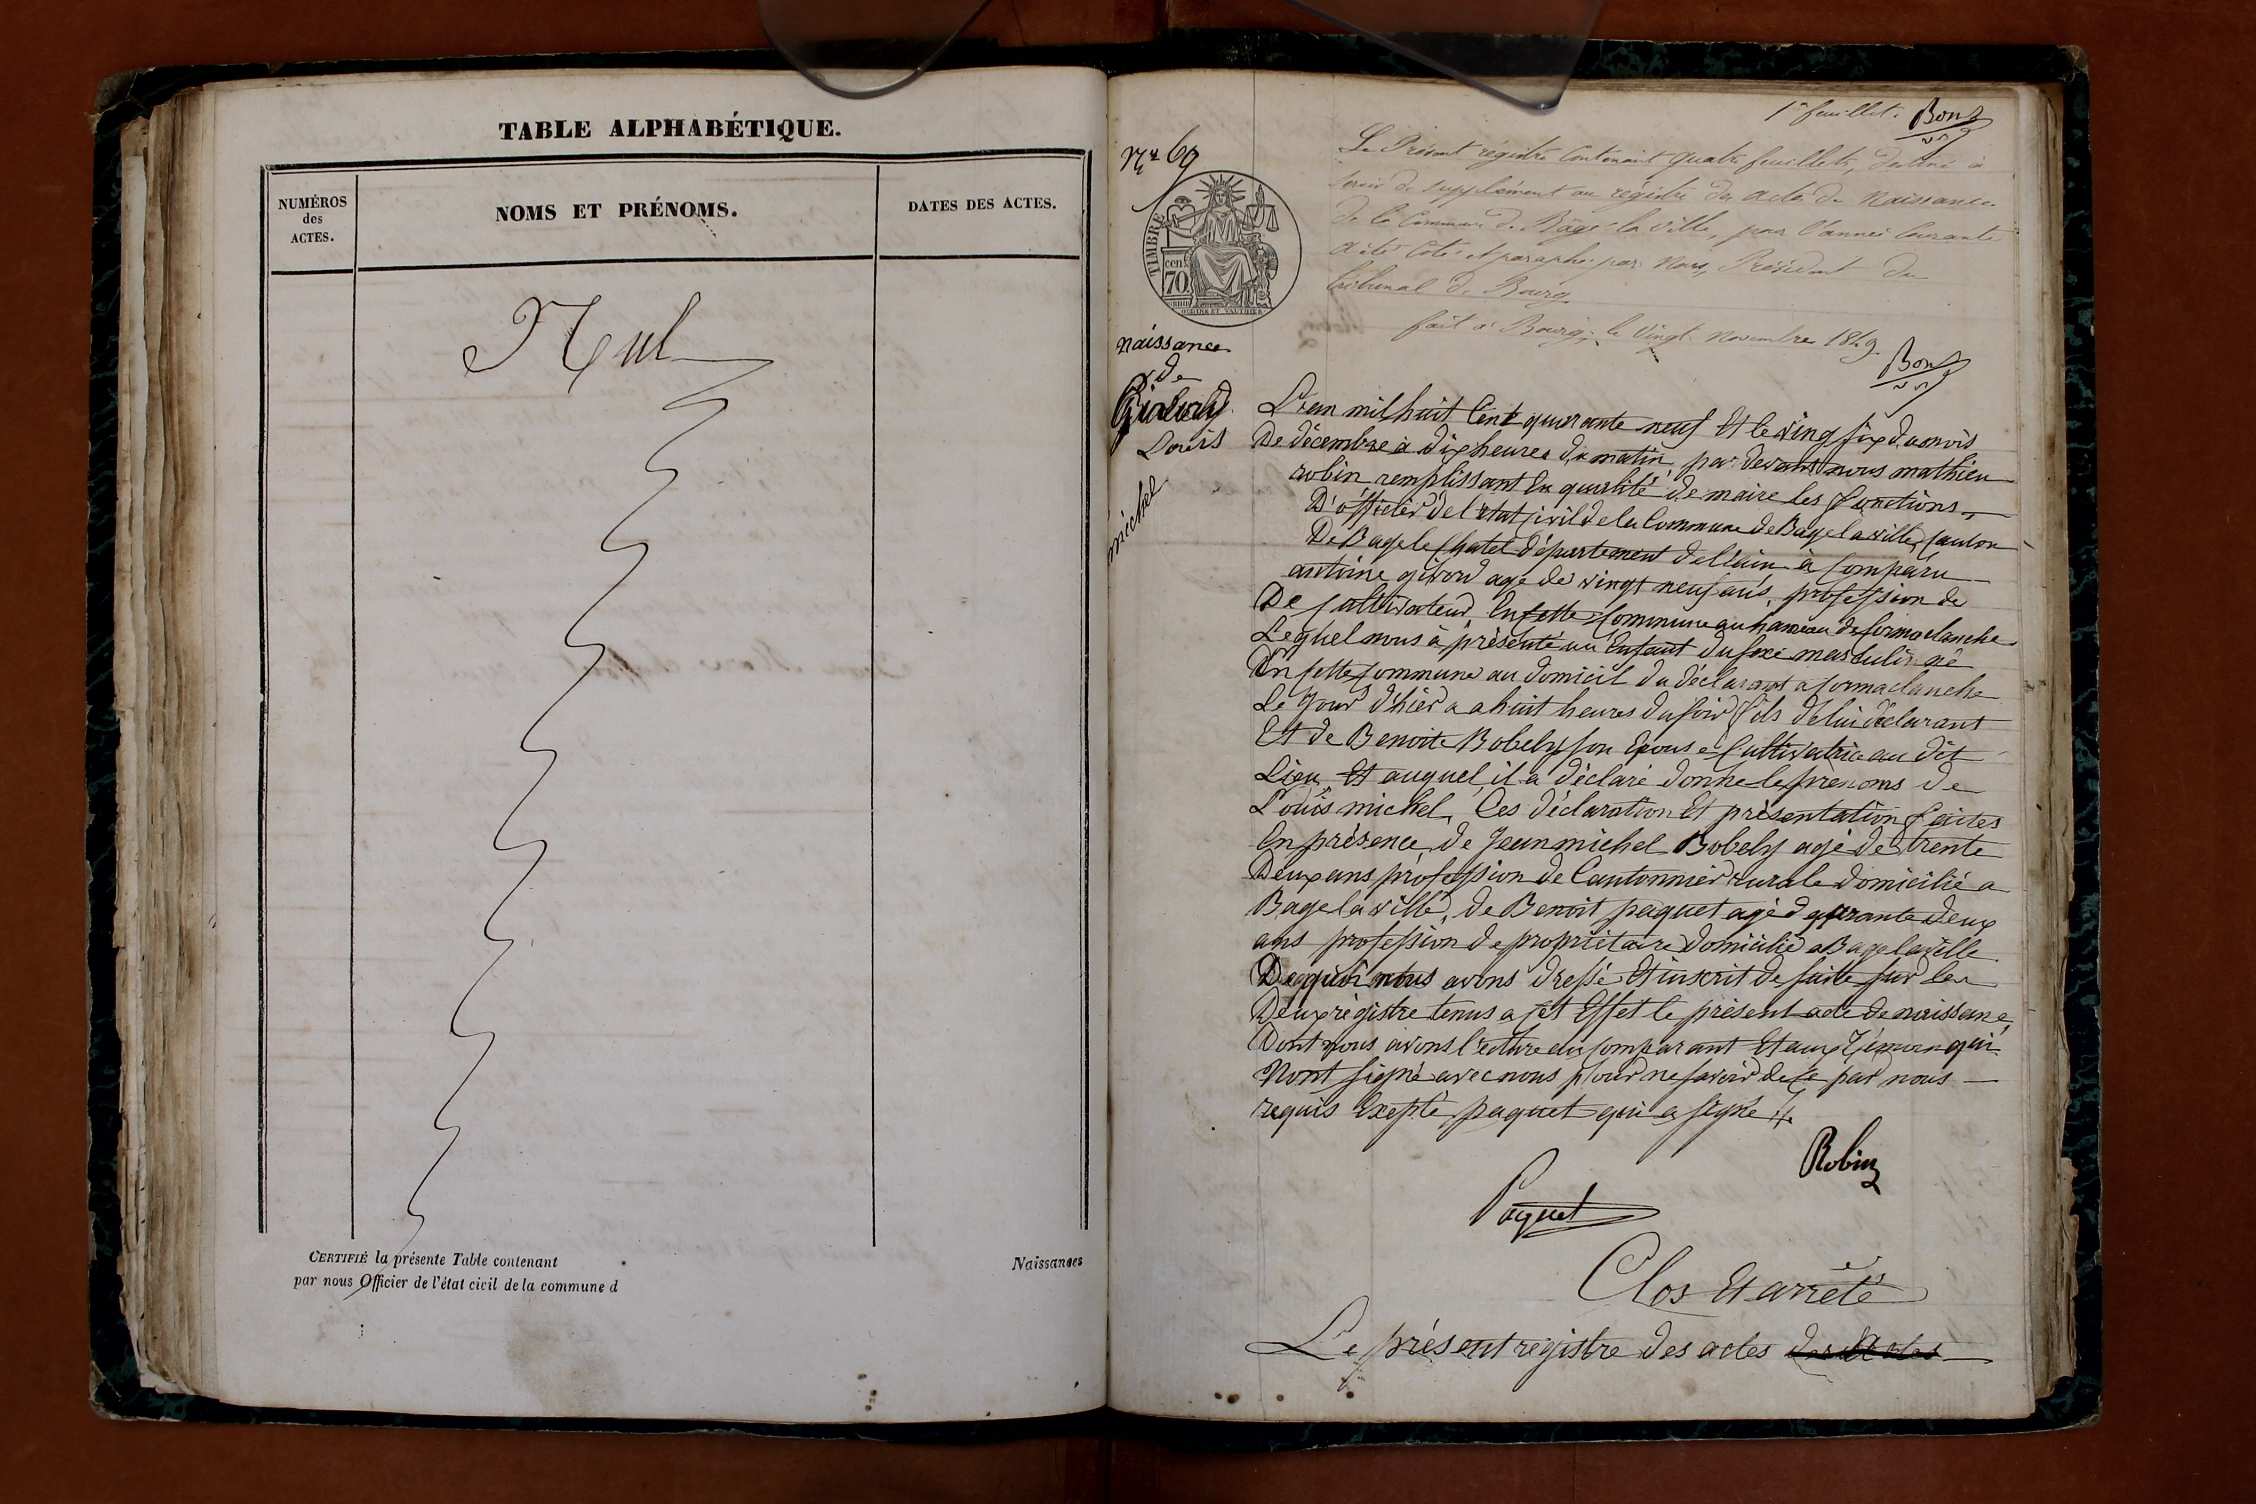 TABLE ALPHABÉTIQUE.
NUMÉROS
des
ACTES.
NOMS ET PRÉNOMS.
DATES DES ACTES.
Nul
CERTIFIÉ la présente Table contenant
Naissances
par nous Officier de l'état civil de la commune d
1er feuillet. Bon
Le Présent régistre Contenant quatre feuillets, destiné à
servir de supplément au régistre des actes de Naissances
de la Commune de Bâgé-la-ville, pour l'année Courante
a été Coté et paraphé par Nous, Président du
Tribunal de Bourg.
fait à Bourg, le Vingt Novembre 1849.
Bon
TIMBRE
cen.
70.
naissance
de
Louis
michel
L'an mil huit Cent quarante neuf Et le ving six du mois
De décembre à dix heures du matin, par devant nous mathieu
robin remplissant En qualité de maire les fonctions
D'officier de l'état civil de la Commune de Bage la ville, Canton
De Bage le Chatel département de l'ain à Comparu
antoine girord agé de vingt neuf ans, profession de
De Cultivateur En Cette Commune au hameau de
Lequel nous à présenté un Enfant du sexe masculin né
En Cette Commune au domicil du déclarant a
Le Jour d'hier a a huit heures du soir fils de lui déclarant
Et de Benoite Bobely son Epouse Cultivatrice au dit
Lieu Et auquel il a déclaré donne le prenoms de
Louis michel, Ces déclaration Et présentation faites
En présence de Jean michel Bobely agé de trente
Deux ans profession de Cantonnier rurale domicilié a
Bage la ville, de Benoit paquet agé d quarante deux
ans profession de propriétaire domicilié a Bage la ville
De quoi nous avons dressé Et inscrit de suite sur les
Deux régistre tenus a cet Effet le présent acte de naissance
Dont nous avons l'ecture au Comparant Et aux Témoin qui
Nont signé avec nous pour ne savoir de ce par nous
requis Exepté paquet qui a signé
Robin
Paquet
Clos Et arrêté
Le présent régistre des actes des actes